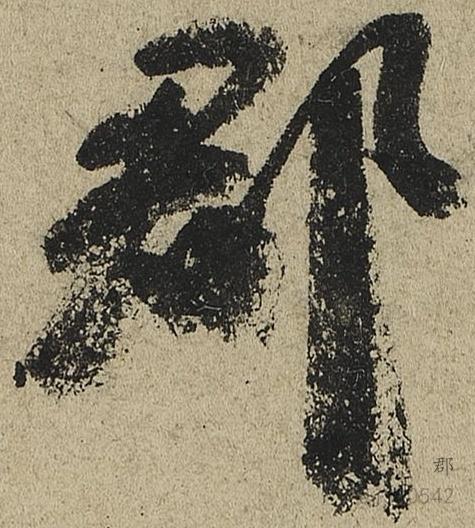 郡
郡
0542